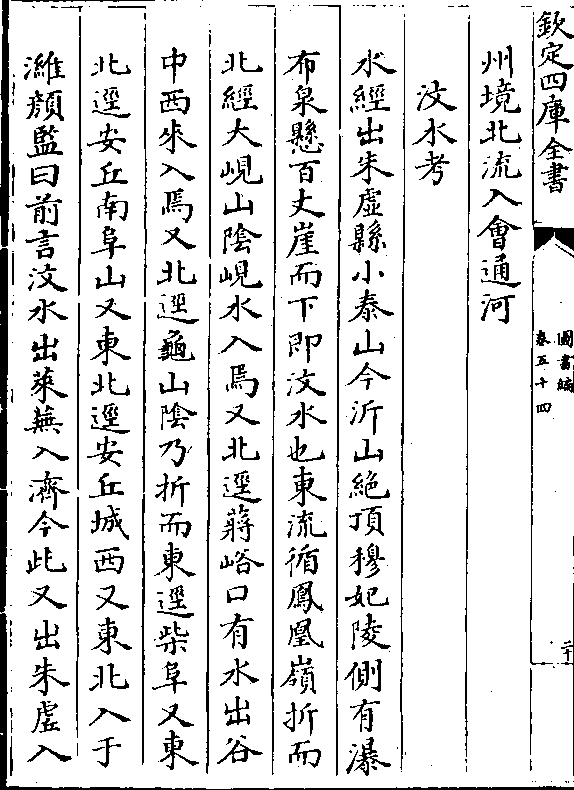 欽定四庫全書
圖書編
卷五十四
二十
州境北流入會通河
汶水考
水經出朱虛縣小泰山今沂山絶頂穆妃陵側有瀑
布泉懸百丈崖而下即汶水也東流循鳳凰嶺折而
北經大峴山陰峴水入焉又北逕蔣峪口有水出谷
中西來入焉又北逕龜山陰乃折而東逕柴阜又東
北逕安丘南阜山又東北逕安丘城西又東北入于
濰顔監曰前言汶水出萊蕪入濟今此又出朱虛入